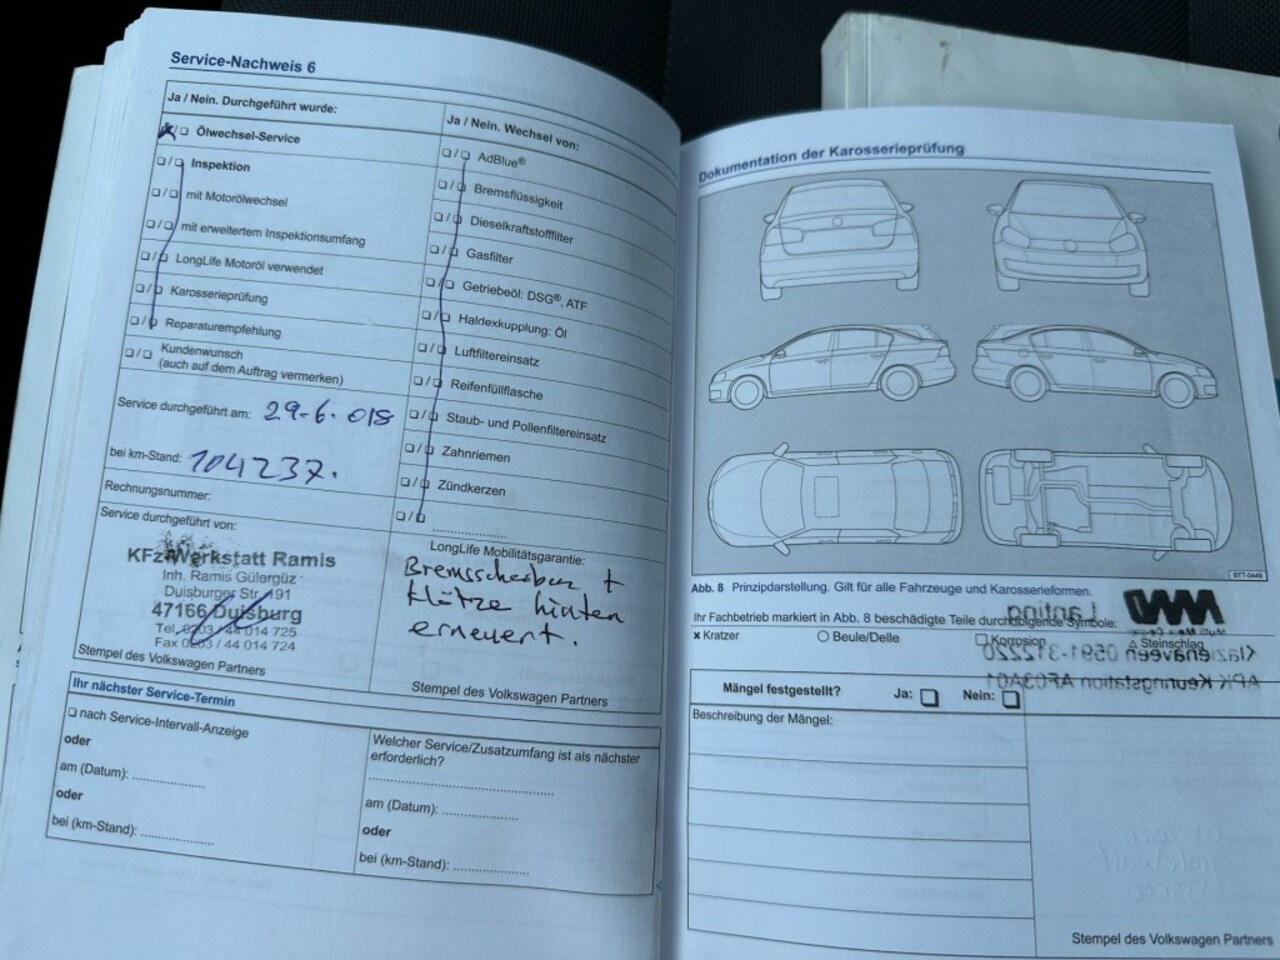 Service-Nachweis 6
Ja / Nein. Durchgeführt wurde:
Ölwechsel-Service
Inspektion
mit Motorölwechsel
mit erweitertem Inspektionsumfang
LongLife Motoröl verwendet
Karosserieprüfung
Reparaturempfehlung
Kundenwunsch
(auch auf dem Auftrag vermerken)
Service durchgeführt am: 29-6.018
bei km-Stand: 104237.
Rechnungsnummer:
Service durchgeführt von:
KFz-Werkstatt Ramis
Inh. Ramis Gülergüz
Duisburger Str. 191
47166 Duisburg
Tel. 0203 / 44 014 725
Fax 0203 / 44 014 724
Stempel des Volkswagen Partners
Ja / Nein. Wechsel von:
AdBlue®
Bremsflüssigkeit
Dieselkraftstofffilter
Gasfilter
Getriebeöl: DSG®, ATF
Haldexkupplung: Öl
Luftfiltereinsatz
Reifenfüllflasche
Staub- und Pollenfiltereinsatz
Zahnriemen
Zündkerzen
LongLife Mobilitätsgarantie:
Bremsscheiben +
Klötze hinten
erneuert.
Stempel des Volkswagen Partners
Ihr nächster Service-Termin
nach Service-Intervall-Anzeige
oder
am (Datum):
oder
bei (km-Stand):
Welcher Service/Zusatzumfang ist als nächster
erforderlich?
am (Datum):
oder
bei (km-Stand):
Dokumentation der Karosserieprüfung
Abb. 8 Prinzipdarstellung. Gilt für alle Fahrzeuge und Karosserieformen.
Ihr Fachbetrieb markiert in Abb. 8 beschädigte Teile durch folgende Symbole:
x Kratzer
Beule/Delle
Korrosion
Steinschlag
Lanting
Klazienaveen 0591-312220
APK Keuringstation AF03A01
Mängel festgestellt? Ja: Nein:
Beschreibung der Mängel:
Stempel des Volkswagen Partners